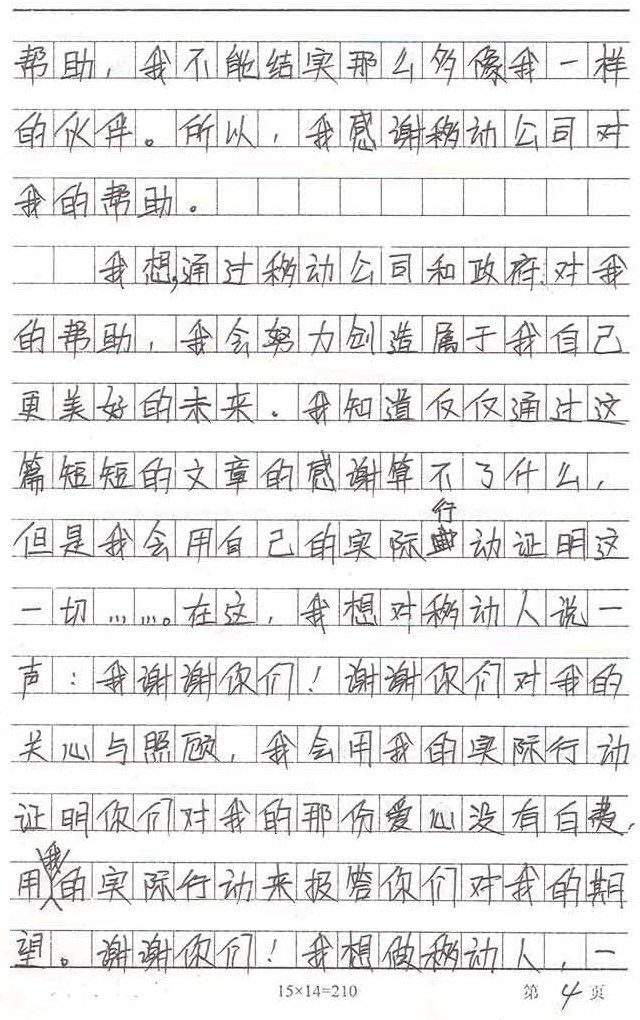 帮助，我不能结实那么多像我一样
的伙伴。所以，我感谢移动公司对
我的帮助。
我想,通过移动公司和政府对我
的帮助，我会努力创造属于我自己
更美好的未来。我知道仅仅通过这
篇短短的文章的感谢算不了什么，
但是我会用自己的实际行动证明这
一切……。在这，我想对移动人说一
声：我谢谢你们！谢谢你们对我的
关心与照顾，我会用我的实际行动
证明你们对我的那份爱心没有白费，
用我的实际行动来报答你们对我的期
望。谢谢你们！我想做移动人，一
15×14=210
第 4 页